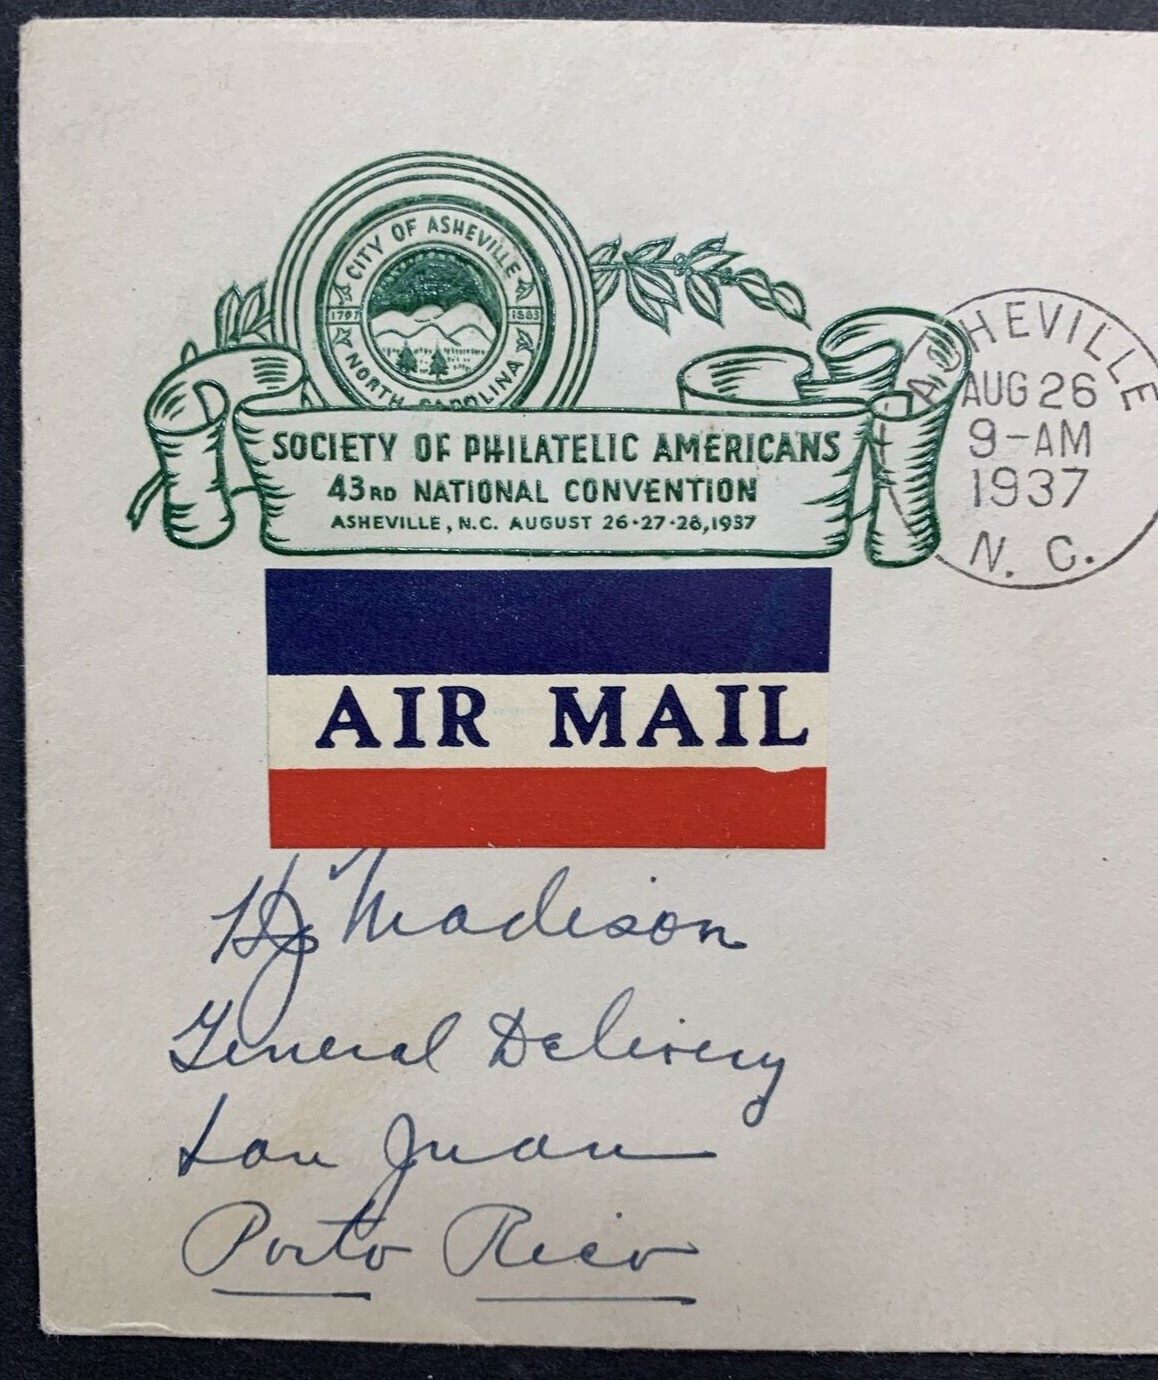 CITY OF ASHEVILLE
1797 1883
NORTH CAROLINA
SOCIETY OF PHILATELIC AMERICANS
43RD NATIONAL CONVENTION
ASHEVILLE, N.C. AUGUST 26·27·28,1937
ASHEVILLE
AUG 26
9-AM
1937
N. C.
AIR MAIL
Madison
General Delivery
San Juan
Porto Rico